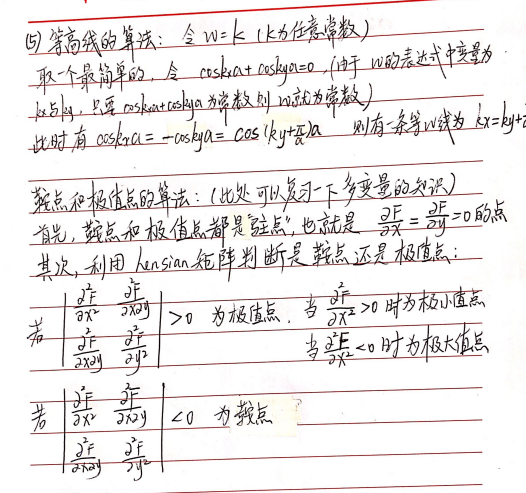 (5) 等高线的算法：令 w=k (k为任意常数)
取一个最简单的，令 coskxa+coskya=0，(由于 w的表达式中变量为
kx与ky，只要 coskxa+coskya 为常数则 w就为常数)
此时有 coskxa=-coskya=cos(ky+π/a)a 则有一条等w线为 kx=ky+
鞍点和极值点的算法：(此处可以复习一下多变量的知识)
首先，鞍点和极值点都是"驻点"，也就是 ∂F/∂x=∂F/∂y=0的点
其次，利用 Hensian 矩阵判断是鞍点还是极值点：
若 |∂²F/∂x² ∂²F/∂x∂y; ∂²F/∂x∂y ∂²F/∂y²| >0 为极值点．当 ∂²F/∂x²>0 时为极小值点
当 ∂²F/∂x²<0 时为极大值点
若 |∂²F/∂x² ∂²F/∂x∂y; ∂²F/∂x∂y ∂²F/∂y²| <0 为鞍点